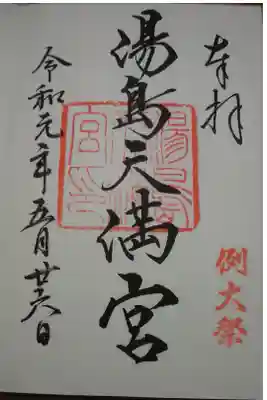 奉拝
例大祭
湯島天満宮
令和元年五月廿六日